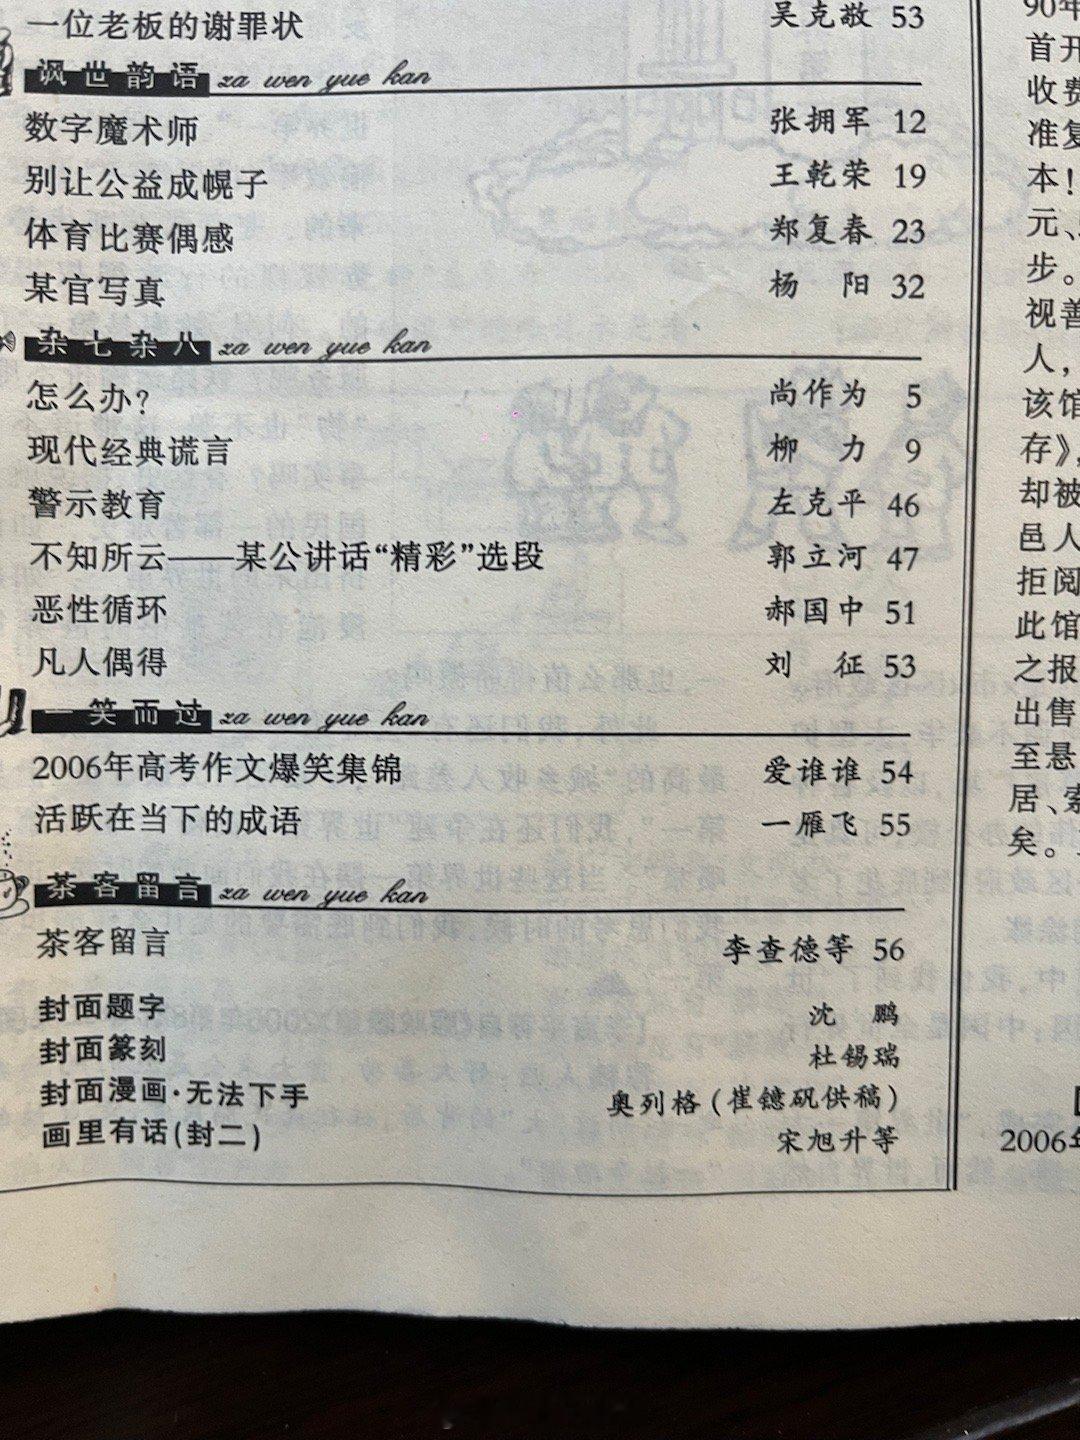 一位老板的谢罪状 吴克敬 53
讽世韵语 za wen yue kan
数字魔术师 张拥军 12
别让公益成幌子 王乾荣 19
体育比赛偶感 郑复春 23
某官写真 杨 阳 32
杂七杂八 za wen yue kan
怎么办? 尚作为 5
现代经典谎言 柳 力 9
警示教育 左克平 46
不知所云——某公讲话“精彩”选段 郭立河 47
恶性循环 郝国中 51
凡人偶得 刘 征 53
一笑而过 za wen yue kan
2006年高考作文爆笑集锦 爱谁谁 54
活跃在当下的成语 一雁飞 55
茶客留言 za wen yue kan
茶客留言 李查德等 56
封面题字 沈 鹏
封面篆刻 杜锡瑞
封面漫画·无法下手 奥列格(崔镱矾供稿)
画里有话(封二) 宋旭升等
90年
首开
收费
准复
本!
元、
步。
视善
人,
该馆
存》,
却被
邑人
拒阅
此馆
之报
出售
至悬
居、索
矣。
2006年